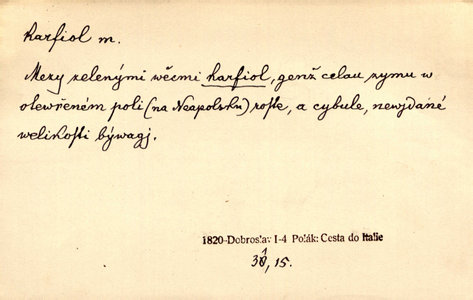 karfiol m.
Mezy zelenými wěcmi karfiol, genž celau zymu w
otewřeném poli (na Neapolsku) roste, a cybule, newydané
welikosti býwagj.
1820-Dobroslav I-4 Polák: Cesta do Italie
31, 15.